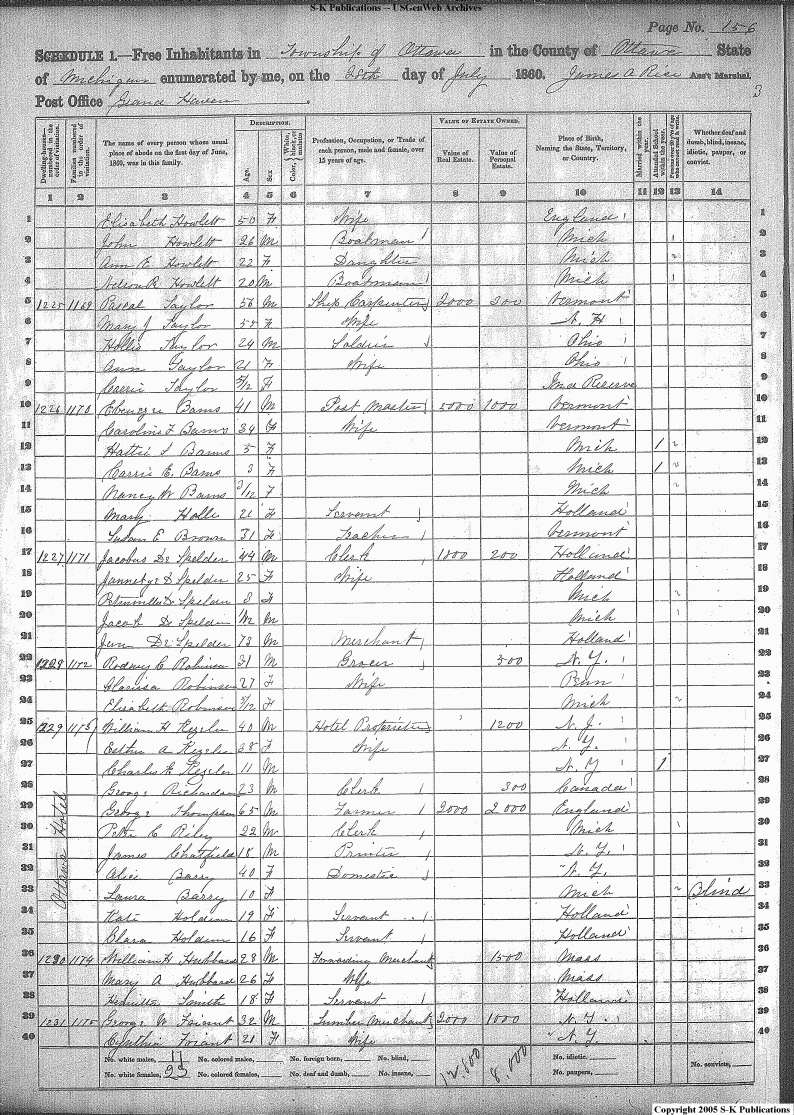 S-K Publications -- USGenWeb Archives
Page No. 156
SCHEDULE 1.—Free Inhabitants in Township of Ottawa in the County of Ottawa State
of Michigan enumerated by me, on the 28th day of July 1860. James A Rice Ass't Marshal.
3
Post Office Grand Haven.
Dwelling-houses— numbered in the order of visitation.
Families numbered in the order of visitation.
The name of every person whose usual place of abode on the first day of June, 1860, was in this family.
DESCRIPTION.
Age.
Sex.
Color, White, black, or mulatto
Profession, Occupation, or Trade of each person, male and female, over 15 years of age.
VALUE OF ESTATE OWNED.
Value of Real Estate.
Value of Personal Estate.
Place of Birth, Naming the State, Territory, or Country.
Married within the year.
Attended School within the year.
Whether deaf and dumb, blind, insane, idiotic, pauper, or convict.
1 2 3 4 5 6 7 8 9 10 11 12 13 14
1 Elisabeth Howlett 50 F Wife England 1
2 John Howlett 26 M Boatman Mich 2
3 Ann E. Howlett 22 F Daughter Mich 3
4 Nelson R Howlett 20 M Boatman Mich 4
5 1225 1169 Pascal Taylor 56 M Ship Carpenter 2000 300 Vermont 5
6 Mary J Taylor 55 F Wife N. H 6
7 Hollis Taylor 24 M Soldier Ohio 7
8 Ann Taylor 21 F Wife Ohio 8
9 Carrie Taylor 5/12 F Ind Reserve 9
10 1226 1170 Ebenezer Barns 41 M Post Master 5000 1000 Vermont 10
11 Caroline L Barns 34 F Wife Vermont 11
12 Hattie S Barns 5 F Mich 1 12
13 Carrie E. Barns 3 F Mich 1 13
14 Nancy W Barns 3/12 F Mich 14
15 Mary Holle 21 F Servant Holland 15
16 Susan E Brown 31 F Teacher Vermont 16
17 1227 1171 Jacobus De Spelder 44 M Clerk 1800 200 Holland 17
18 Spelder 25 F Wife Holland 18
19 De Spelder 3 F Mich 19
20 Jacob De Spelder 1/12 M Mich 20
21 De Spelder 73 M Merchant Holland 21
22 1228 1172 Rodney C Robinson 31 M Grocer 300 N. Y. 22
23 Clarissa Robinson 27 F Wife Penn 23
24 Elisabeth Robinson 5/12 F Mich 24
25 1229 1173 William H Kezeler 40 M Hotel Proprietor 1200 N. J. 25
26 Esther A Kezeler 38 F Wife N. Y. 26
27 Charles F Kezeler 11 M N. Y 1 27
28 George Richardson 23 M Clerk 300 Canada 28
29 George Thompson 65 M Farmer 2000 2000 England 29
30 Peter C Riley 22 M Clerk Mich 30
31 James Chatfield 18 M Printer N. Y. 31
32 Alice Barry 40 F Domestic N. Y. 32
33 Laura Barry 10 F Mich Blind 33
34 Kate Holden 19 F Servant Holland 34
35 Clara Holden 16 F Servant Holland 35
Ottawa Hotel
36 1230 1174 William H Hubbard 28 M Forwarding Merchant 1500 Mass 36
37 Mary A Hubbard 26 F Wife Mass 37
38 Smith 18 F Servant Holland 38
39 1231 1175 George W Friant 32 M Lumber Merchant 2000 1000 N. Y. 39
40 Cynthia Friant 21 F Wife N. Y. 40
No. white males, 17 No. colored males, No. foreign born, No. blind, 12,800 8,000 No. idiotic,
No. white females, 23 No. colored females, No. deaf and dumb, No. insane, No. paupers, No. convicts,
Copyright 2005 S-K Publications